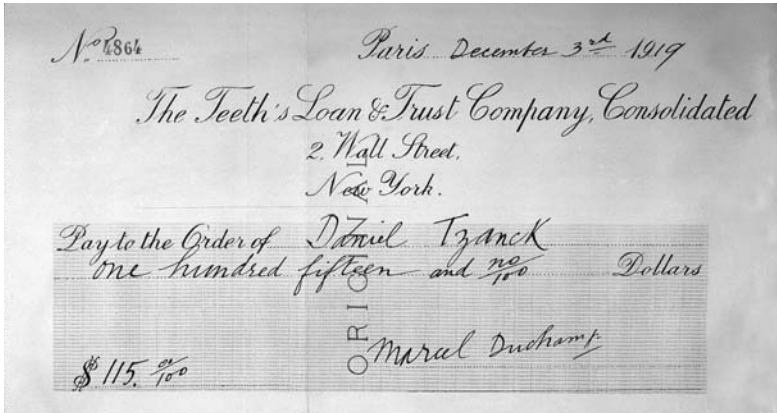 No. 4864
Paris December 3rd 1919
The Teeth's Loan & Trust Company, Consolidated
2. Wall Street.
New York.
Pay to the Order of Daniel Tzanck
one hundred fifteen and no/100 Dollars
$ 115. no/100
Marcel Duchamp
ORIGINAL